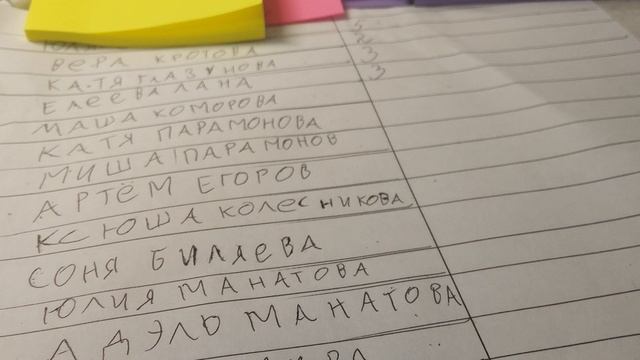 ВЕРА КРОТОВА 3
КАТЯ ГЛАЗУНОВА 3
ЕЛЕЕВА ЛАНА
МАША КОМОРОВА
КАТЯ ПАРАМОНОВА
МИША ПАРАМОНОВ
АРТЁМ ЕГОРОВ
КСЮША КОЛЕСНИКОВА
СОНЯ БИЛЯЕВА
ЮЛИЯ МАНАТОВА
АДЭЛЬ МАНАТОВА